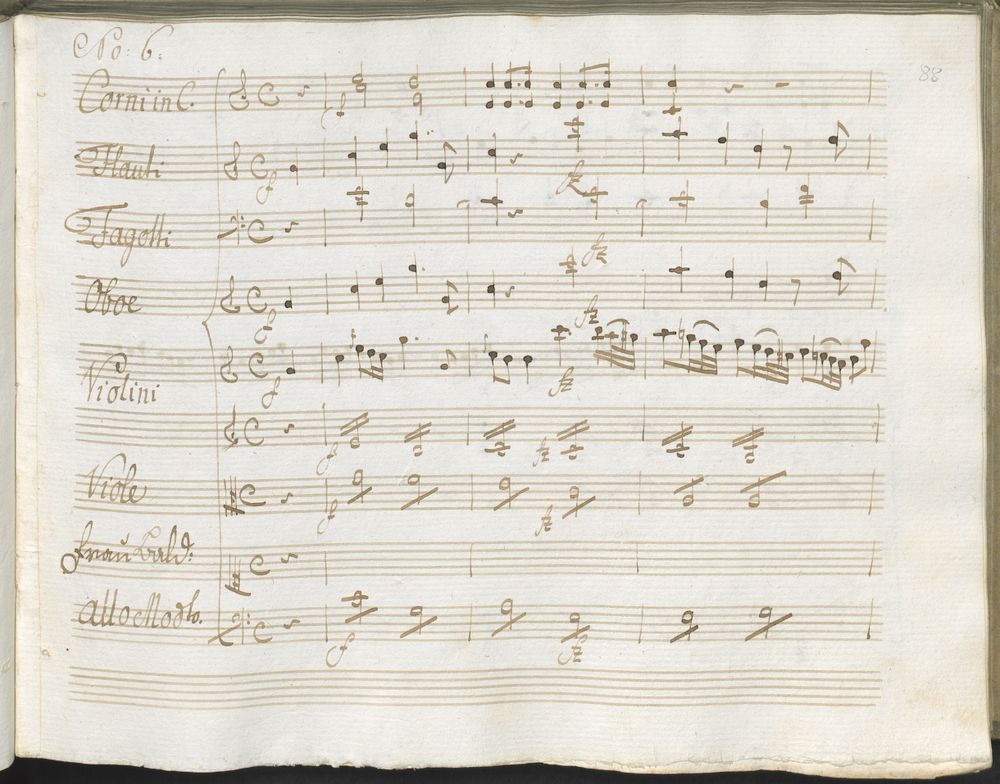 No: 6:
88
Corni in C.
f
Flauti
f
fz
Fagotti
fz
Oboe
f
fz
Violini
f
fz
f
fz
Viole
f
fz
frau Bald:
Allo Modto.
f
fz